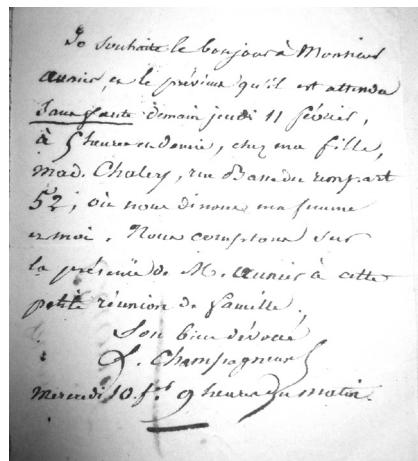 Je souhaite le bonjour à Monsieur
aunier, et le préviens qu'il est attendu
Sans faute demain jeudi 11 février,
à 5 heures et demie, chez ma fille,
mad. Chalery, rue Basse du rempart
52; où nous dinons ma femme
et moi. Nous comptons sur
la présence de M. aunier à cette
petite réunion de famille.
Son bien dévoué
Champagneux
mercredi 10 f.er 9 heures du matin.